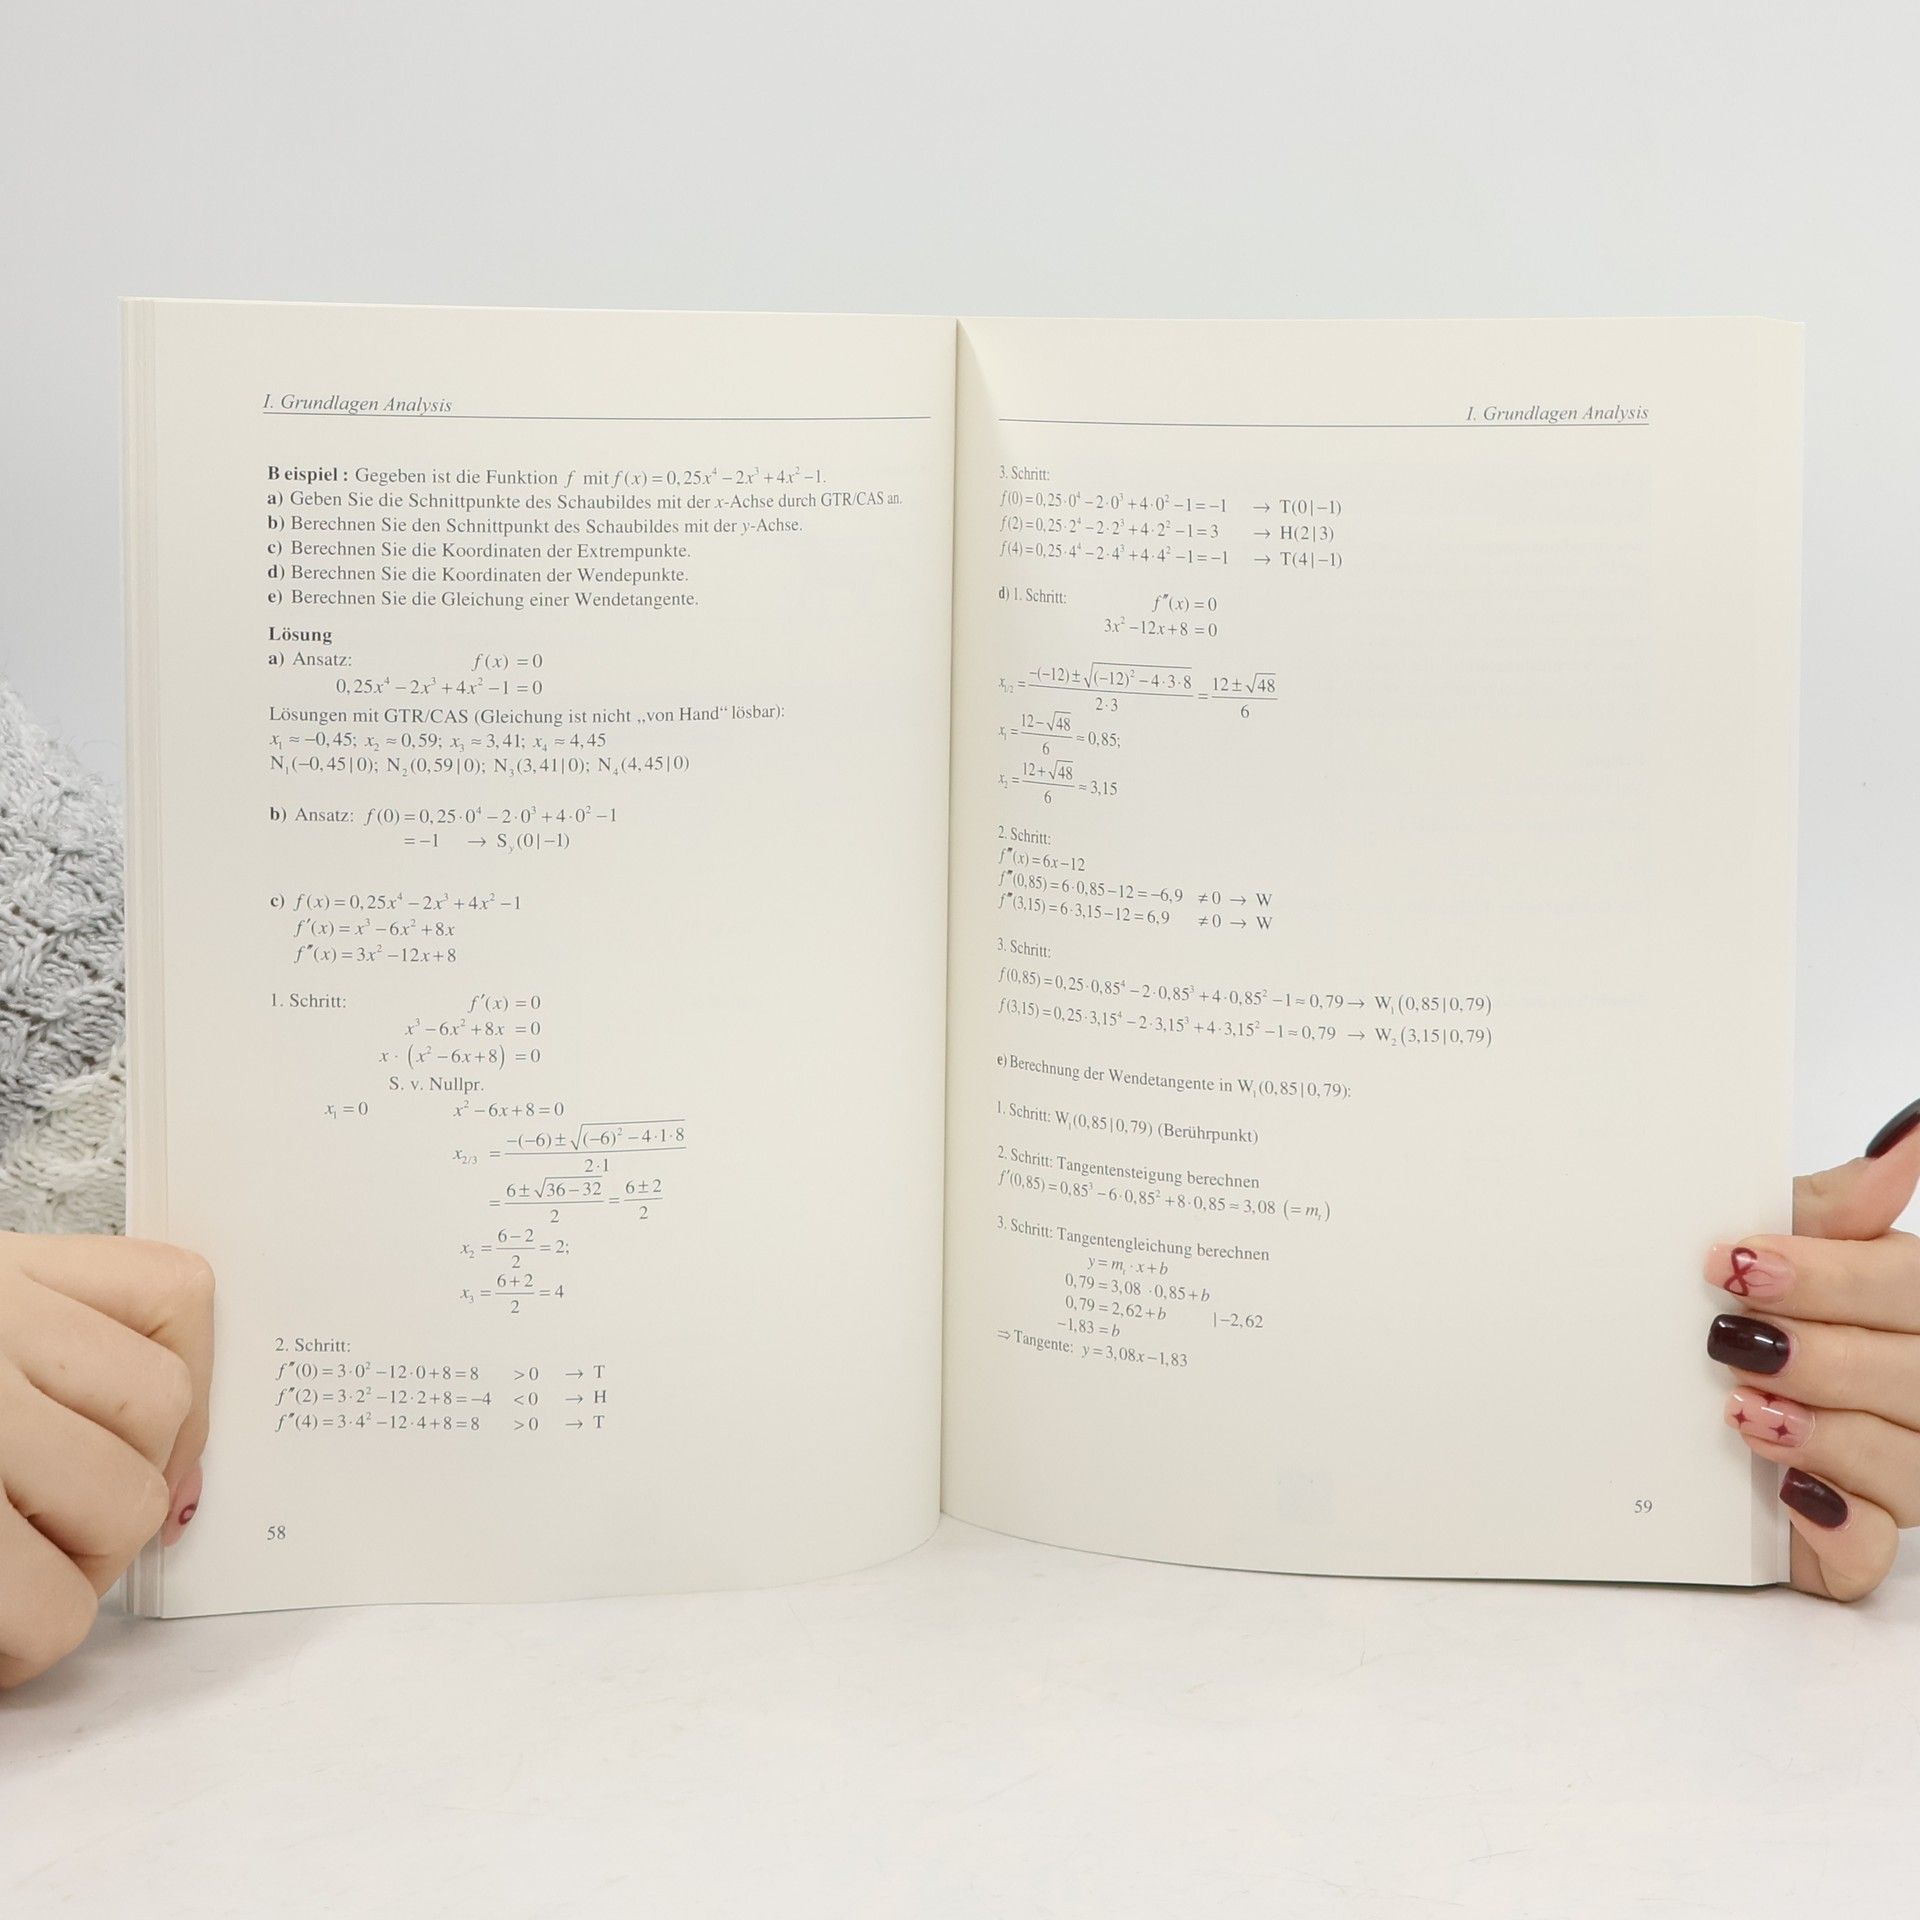 I. Grundlagen Analysis
B eispiel : Gegeben ist die Funktion f mit f(x) = 0,25x⁴ – 2x³ + 4x² – 1.
a) Geben Sie die Schnittpunkte des Schaubildes mit der x-Achse durch GTR/CAS an.
b) Berechnen Sie den Schnittpunkt des Schaubildes mit der y-Achse.
c) Berechnen Sie die Koordinaten der Extrempunkte.
d) Berechnen Sie die Koordinaten der Wendepunkte.
e) Berechnen Sie die Gleichung einer Wendetangente.
Lösung
a) Ansatz: f(x) = 0
0,25x⁴ – 2x³ + 4x² – 1 = 0
Lösungen mit GTR/CAS (Gleichung ist nicht „von Hand“ lösbar):
x₁ ≈ –0,45; x₂ ≈ 0,59; x₃ ≈ 3,41; x₄ ≈ 4,45
N₁(–0,45|0); N₂(0,59|0); N₃(3,41|0); N₄(4,45|0)
b) Ansatz: f(0) = 0,25·0⁴ – 2·0³ + 4·0² – 1
= –1 → S_y(0|–1)
c) f(x) = 0,25x⁴ – 2x³ + 4x² – 1
f′(x) = x³ – 6x² + 8x
f″(x) = 3x² – 12x + 8
1. Schritt: f′(x) = 0
x³ – 6x² + 8x = 0
x · (x² – 6x + 8) = 0
S. v. Nullpr.
x₁ = 0 x² – 6x + 8 = 0
x_2/3 = (–(–6) ± √((–6)² – 4·1·8)) / (2·1)
= (6 ± √(36 – 32)) / 2 = (6 ± 2) / 2
x₂ = (6 – 2) / 2 = 2;
x₃ = (6 + 2) / 2 = 4
2. Schritt:
f″(0) = 3·0² – 12·0 + 8 = 8 > 0 → T
f″(2) = 3·2² – 12·2 + 8 = –4 < 0 → H
f″(4) = 3·4² – 12·4 + 8 = 8 > 0 → T
58
I. Grundlagen Analysis
3. Schritt:
f(0) = 0,25·0⁴ – 2·0³ + 4·0² – 1 = –1 → T(0|–1)
f(2) = 0,25·2⁴ – 2·2³ + 4·2² – 1 = 3 → H(2|3)
f(4) = 0,25·4⁴ – 2·4³ + 4·4² – 1 = –1 → T(4|–1)
d) 1. Schritt: f″(x) = 0
3x² – 12x + 8 = 0
x_1/2 = (–(–12) ± √((–12)² – 4·3·8)) / (2·3) = (12 ± √48) / 6
x₁ = (12 – √48) / 6 ≈ 0,85;
x₂ = (12 + √48) / 6 ≈ 3,15
2. Schritt:
f‴(x) = 6x – 12
f‴(0,85) = 6·0,85 – 12 = –6,9 ≠ 0 → W
f‴(3,15) = 6·3,15 – 12 = 6,9 ≠ 0 → W
3. Schritt:
f(0,85) = 0,25·0,85⁴ – 2·0,85³ + 4·0,85² – 1 ≈ 0,79 → W₁(0,85|0,79)
f(3,15) = 0,25·3,15⁴ – 2·3,15³ + 4·3,15² – 1 ≈ 0,79 → W₂(3,15|0,79)
e) Berechnung der Wendetangente in W₁(0,85|0,79):
1. Schritt: W₁(0,85|0,79) (Berührpunkt)
2. Schritt: Tangentensteigung berechnen
f′(0,85) = 0,85³ – 6·0,85² + 8·0,85 ≈ 3,08 (= m_t)
3. Schritt: Tangentengleichung berechnen
y = m_t · x + b
0,79 = 3,08 ·0,85 + b
0,79 = 2,62 + b |–2,62
–1,83 = b
⇒ Tangente: y = 3,08x – 1,83
59